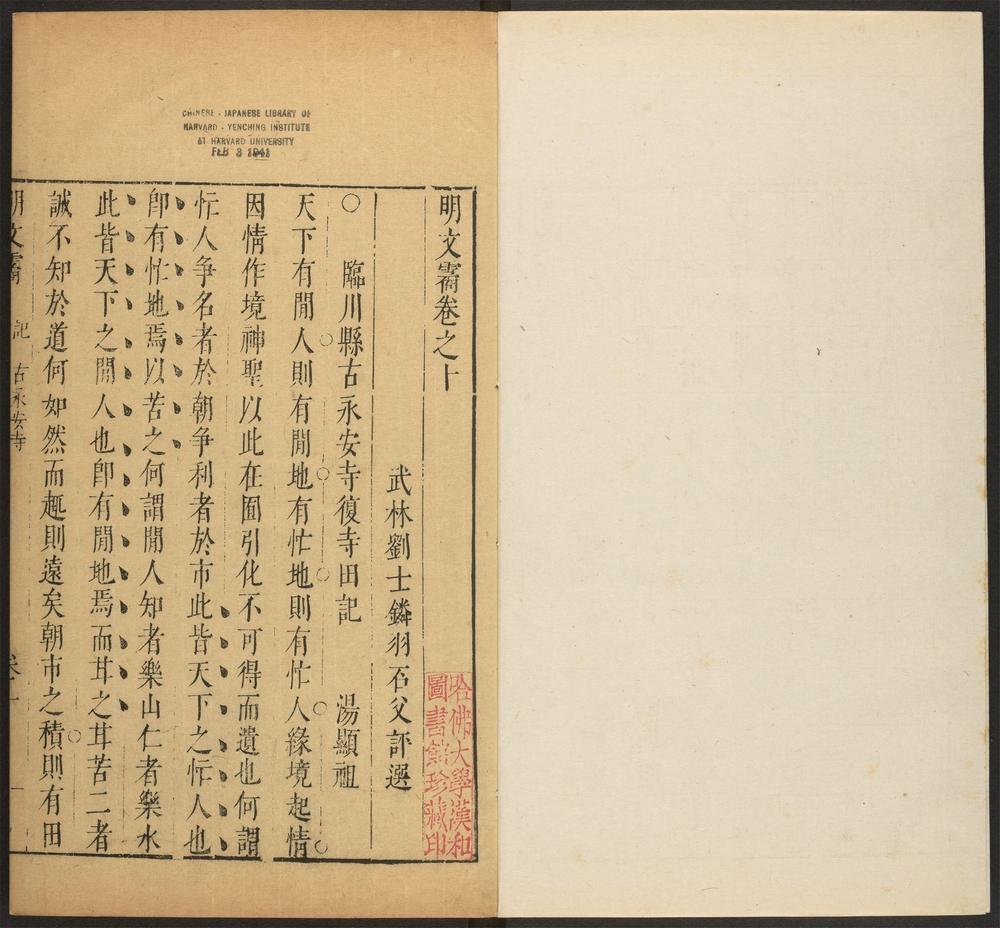 CHINESE - JAPANESE LIBRARY OF
HARVARD - YENCHING INSTITUTE
AT HARVARD UNIVERSITY
FEB 3 1941
明文霱卷之十
武林劉士鏻羽石父評選
哈佛大學漢和
圖書館珍藏印
○臨川縣古永安寺復寺田記 湯顯祖
天下有閒人則有閒地有忙地則有忙人緣境起情
因情作境神聖以此在囿引化不可得而遺也何謂
忙人争名者於朝争利者於市此皆天下之忙人也
卽有忙地焉以苦之何謂閒人知者樂山仁者樂水
此皆天下之閒人也卽有閒地焉而甘之甘苦二者
誠不知於道何如然而趣則遠矣朝市之積則有田
明文霱 記 古永安寺 卷十 一